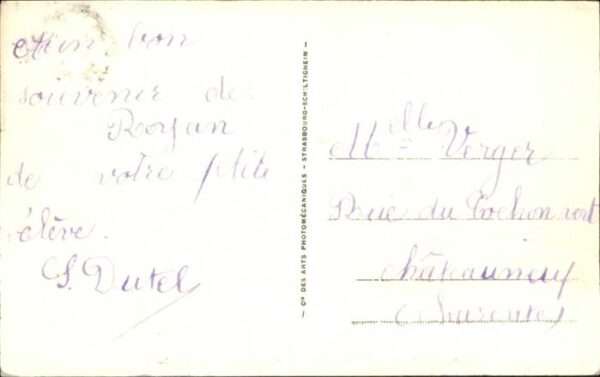 bon
souvenir de
Royan
de votre ptite
élève.
S. Dutel
— Cie DES ARTS PHOTOMÉCANIQUES - STRASBOURG-SCHILTIGHEIM —
Verger
Rue du Cochon vert
Châteauneuf
Charente